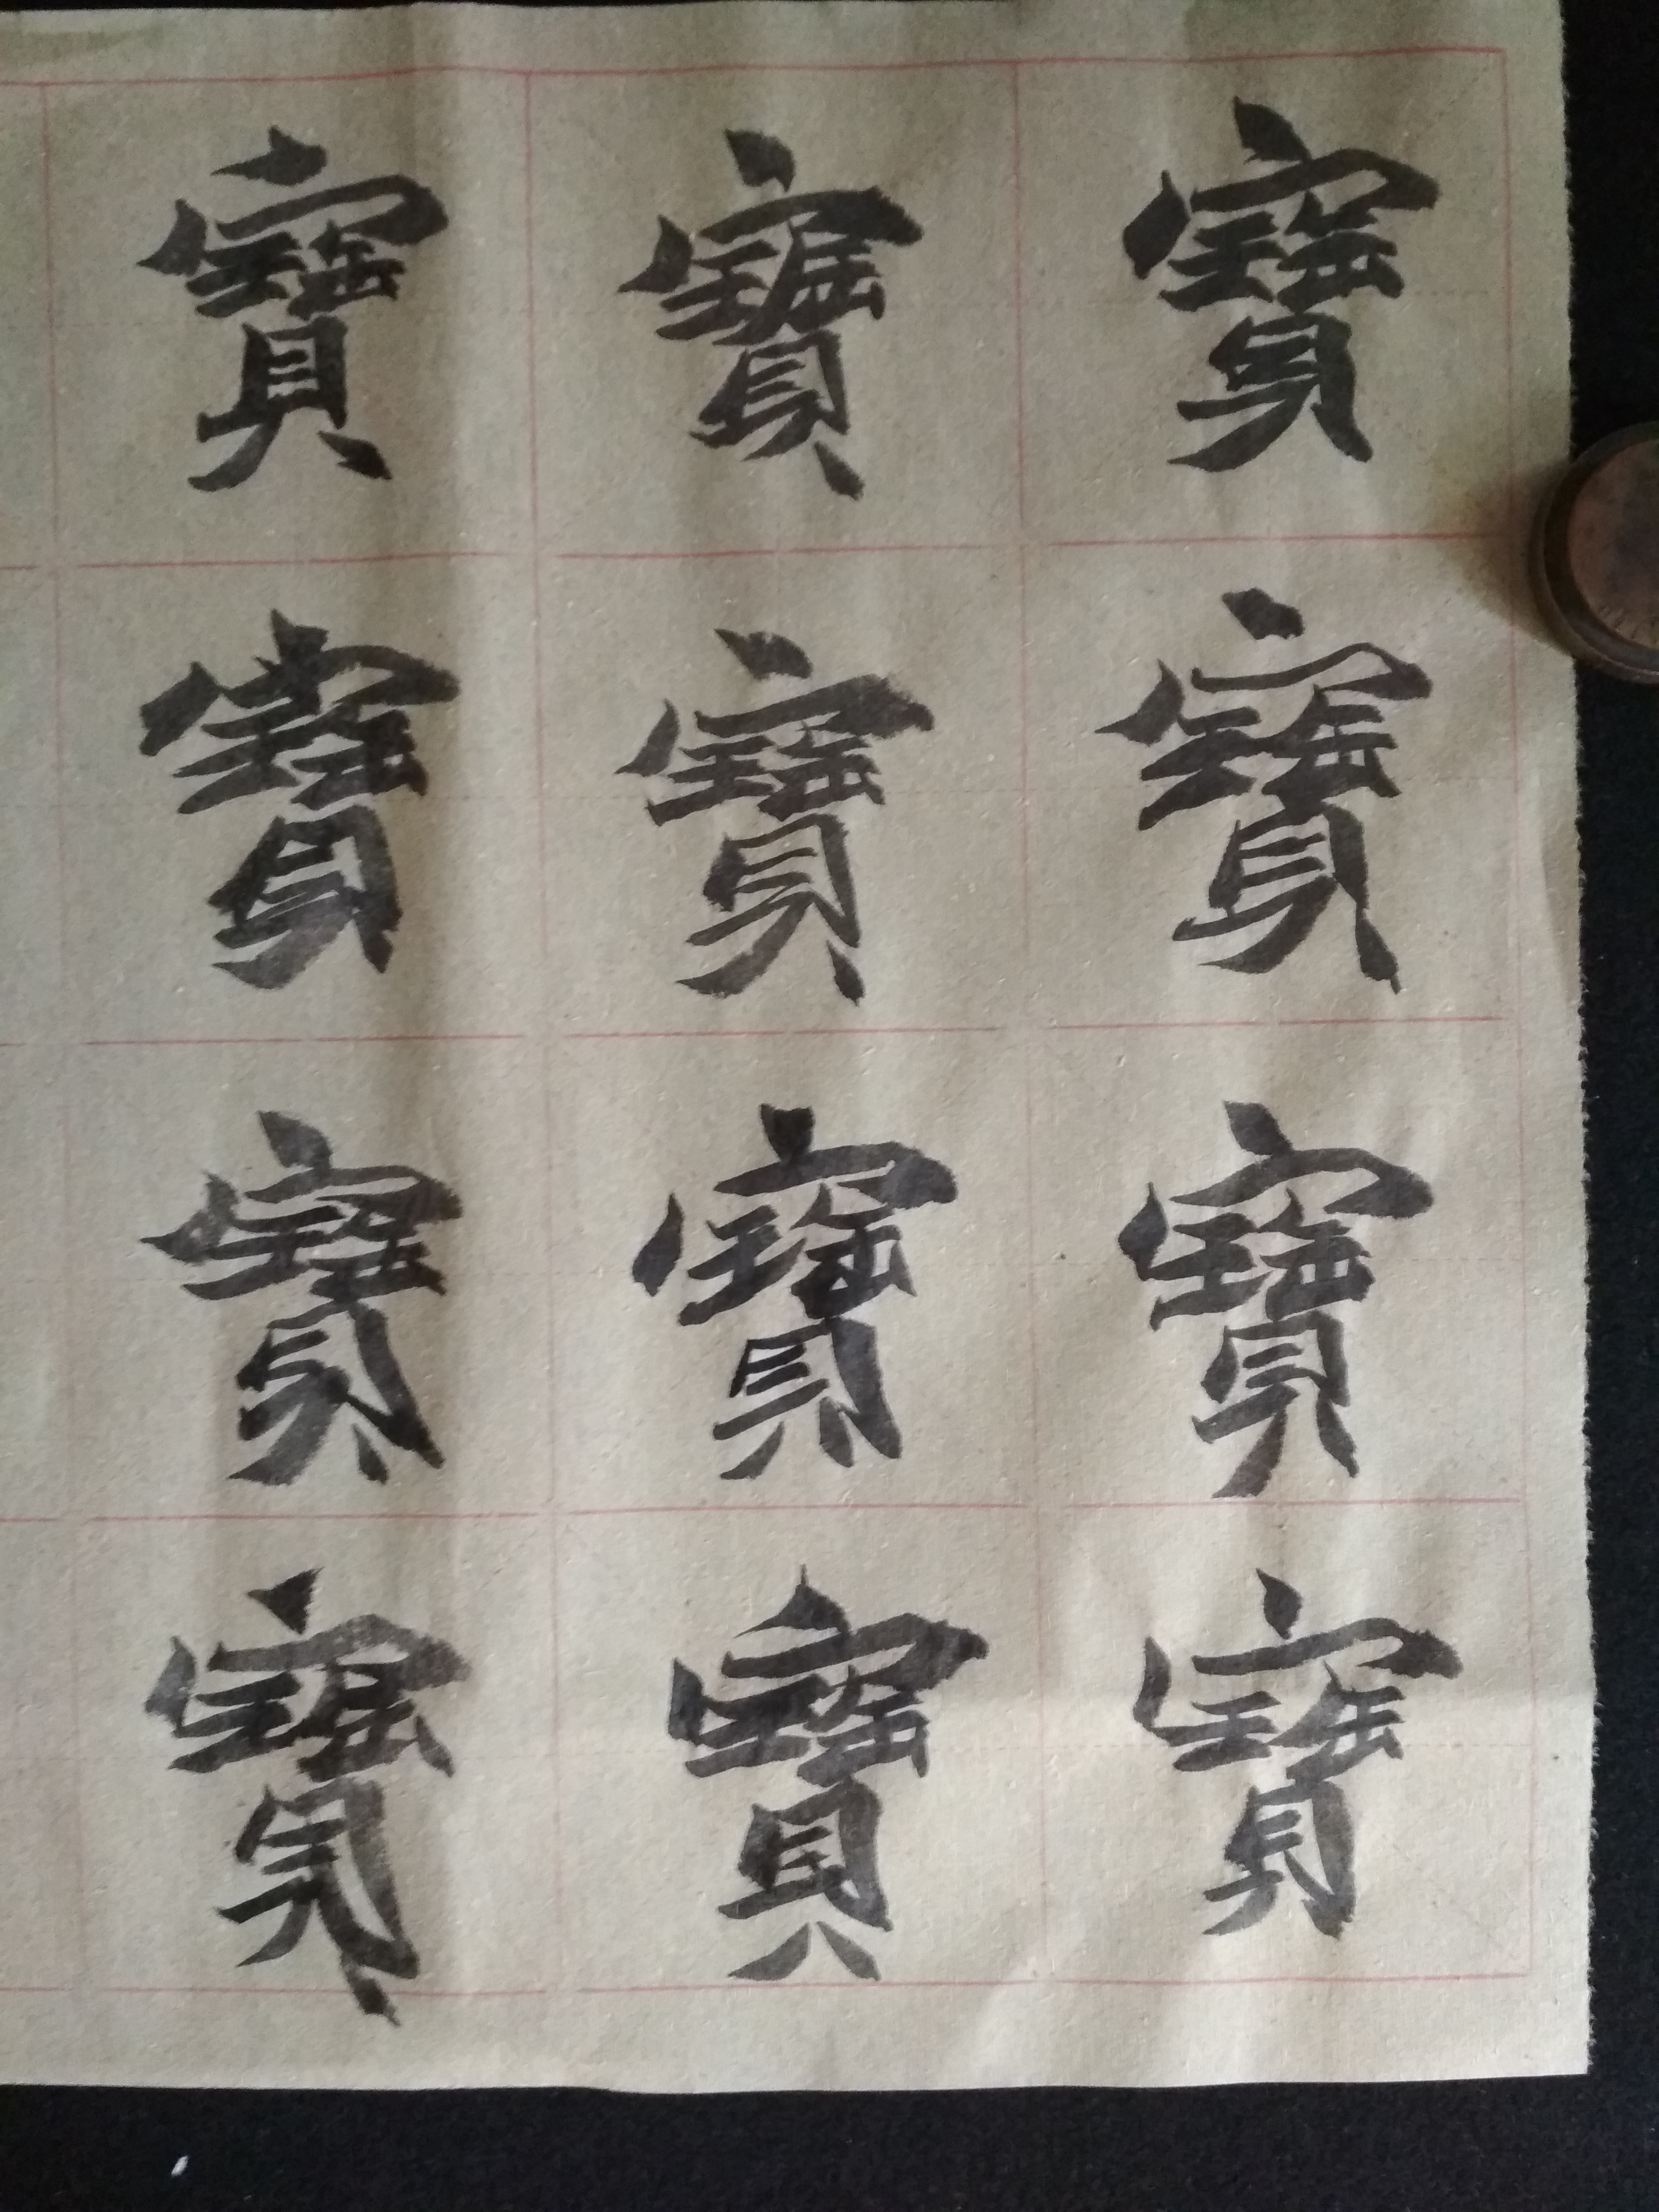 寶寶寶
寶寶寶
寶寶寶
寶寶寶